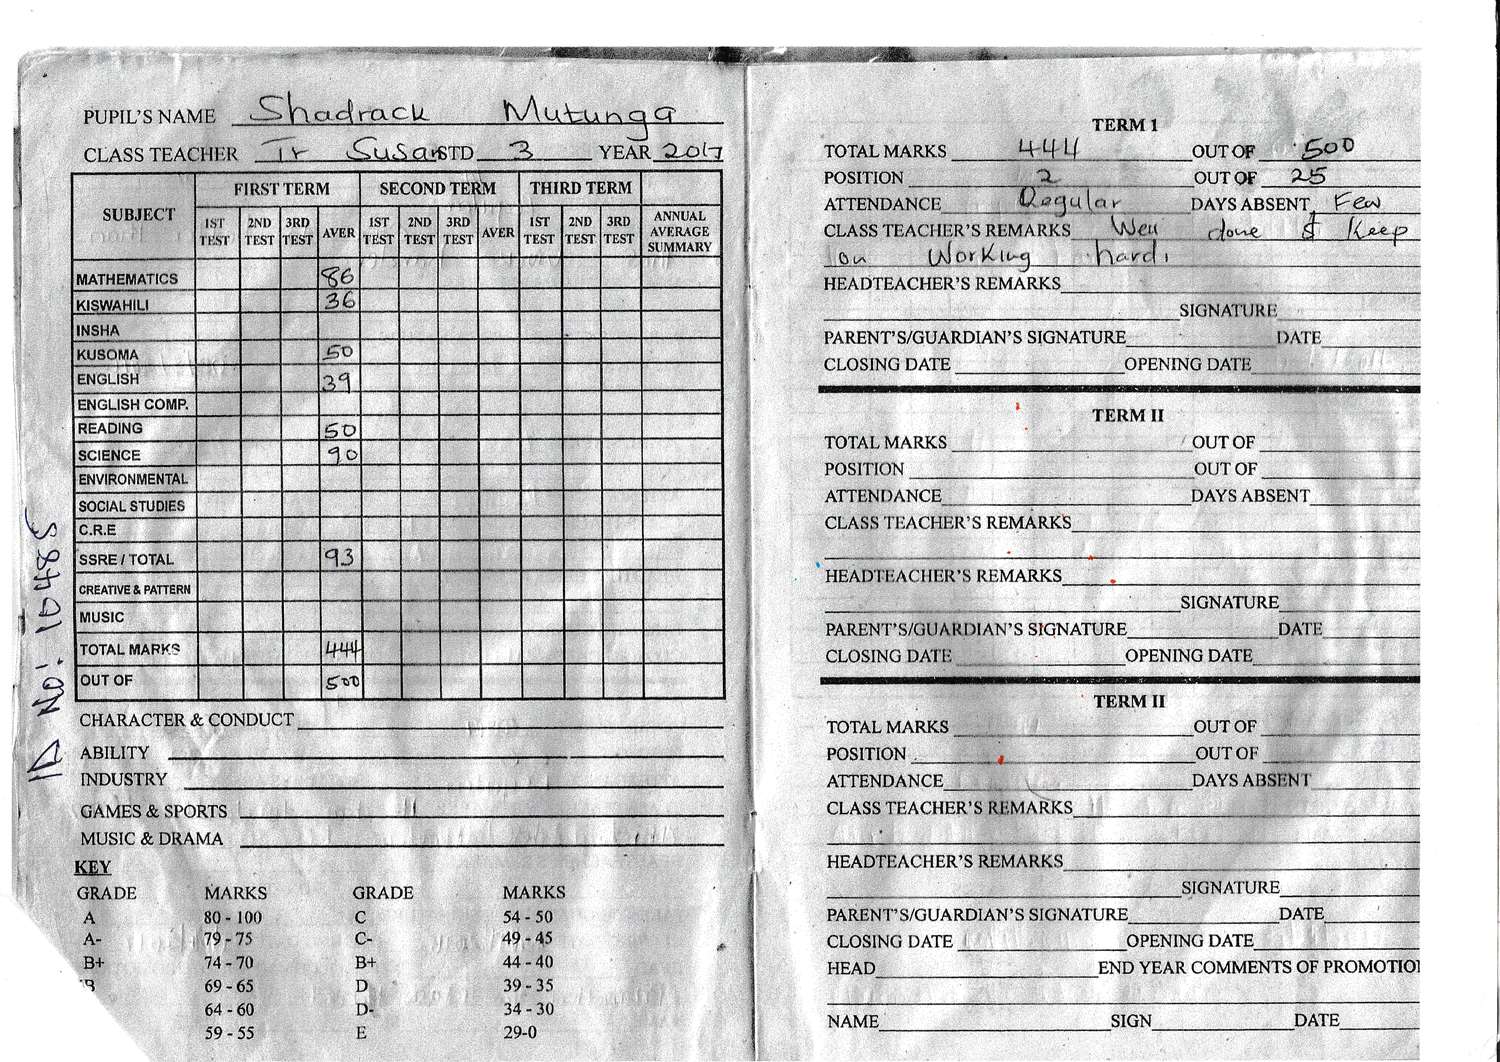 PUPIL'S NAME Shadrack Mutunga
CLASS TEACHER Tr Susan STD 3 YEAR 2017
SUBJECT FIRST TERM SECOND TERM THIRD TERM
1ST TEST 2ND TEST 3RD TEST AVER 1ST TEST 2ND TEST 3RD TEST AVER 1ST TEST 2ND TEST 3RD TEST ANNUAL AVERAGE SUMMARY
MATHEMATICS 86
KISWAHILI 36
INSHA
KUSOMA 50
ENGLISH 39
ENGLISH COMP.
READING 50
SCIENCE 90
ENVIRONMENTAL
SOCIAL STUDIES
C.R.E
SSRE / TOTAL 93
CREATIVE & PATTERN
MUSIC
TOTAL MARKS 444
OUT OF 500
CHARACTER & CONDUCT
ABILITY
INDUSTRY
GAMES & SPORTS
MUSIC & DRAMA
KEY
GRADE MARKS GRADE MARKS
A 80 - 100 C 54 - 50
A- 79 - 75 C- 49 - 45
B+ 74 - 70 B+ 44 - 40
B 69 - 65 D 39 - 35
64 - 60 D- 34 - 30
59 - 55 E 29-0
ID No: 110485
TERM 1
TOTAL MARKS 444 OUT OF 500
POSITION 2 OUT OF 25
ATTENDANCE Regular DAYS ABSENT Few
CLASS TEACHER'S REMARKS Well done & Keep
on Working hard.
HEADTEACHER'S REMARKS
SIGNATURE
PARENT'S/GUARDIAN'S SIGNATURE DATE
CLOSING DATE OPENING DATE
TERM II
TOTAL MARKS OUT OF
POSITION OUT OF
ATTENDANCE DAYS ABSENT
CLASS TEACHER'S REMARKS
HEADTEACHER'S REMARKS
SIGNATURE
PARENT'S/GUARDIAN'S SIGNATURE DATE
CLOSING DATE OPENING DATE
TERM II
TOTAL MARKS OUT OF
POSITION OUT OF
ATTENDANCE DAYS ABSENT
CLASS TEACHER'S REMARKS
HEADTEACHER'S REMARKS
SIGNATURE
PARENT'S/GUARDIAN'S SIGNATURE DATE
CLOSING DATE OPENING DATE
HEAD END YEAR COMMENTS OF PROMOTIO
NAME SIGN DATE